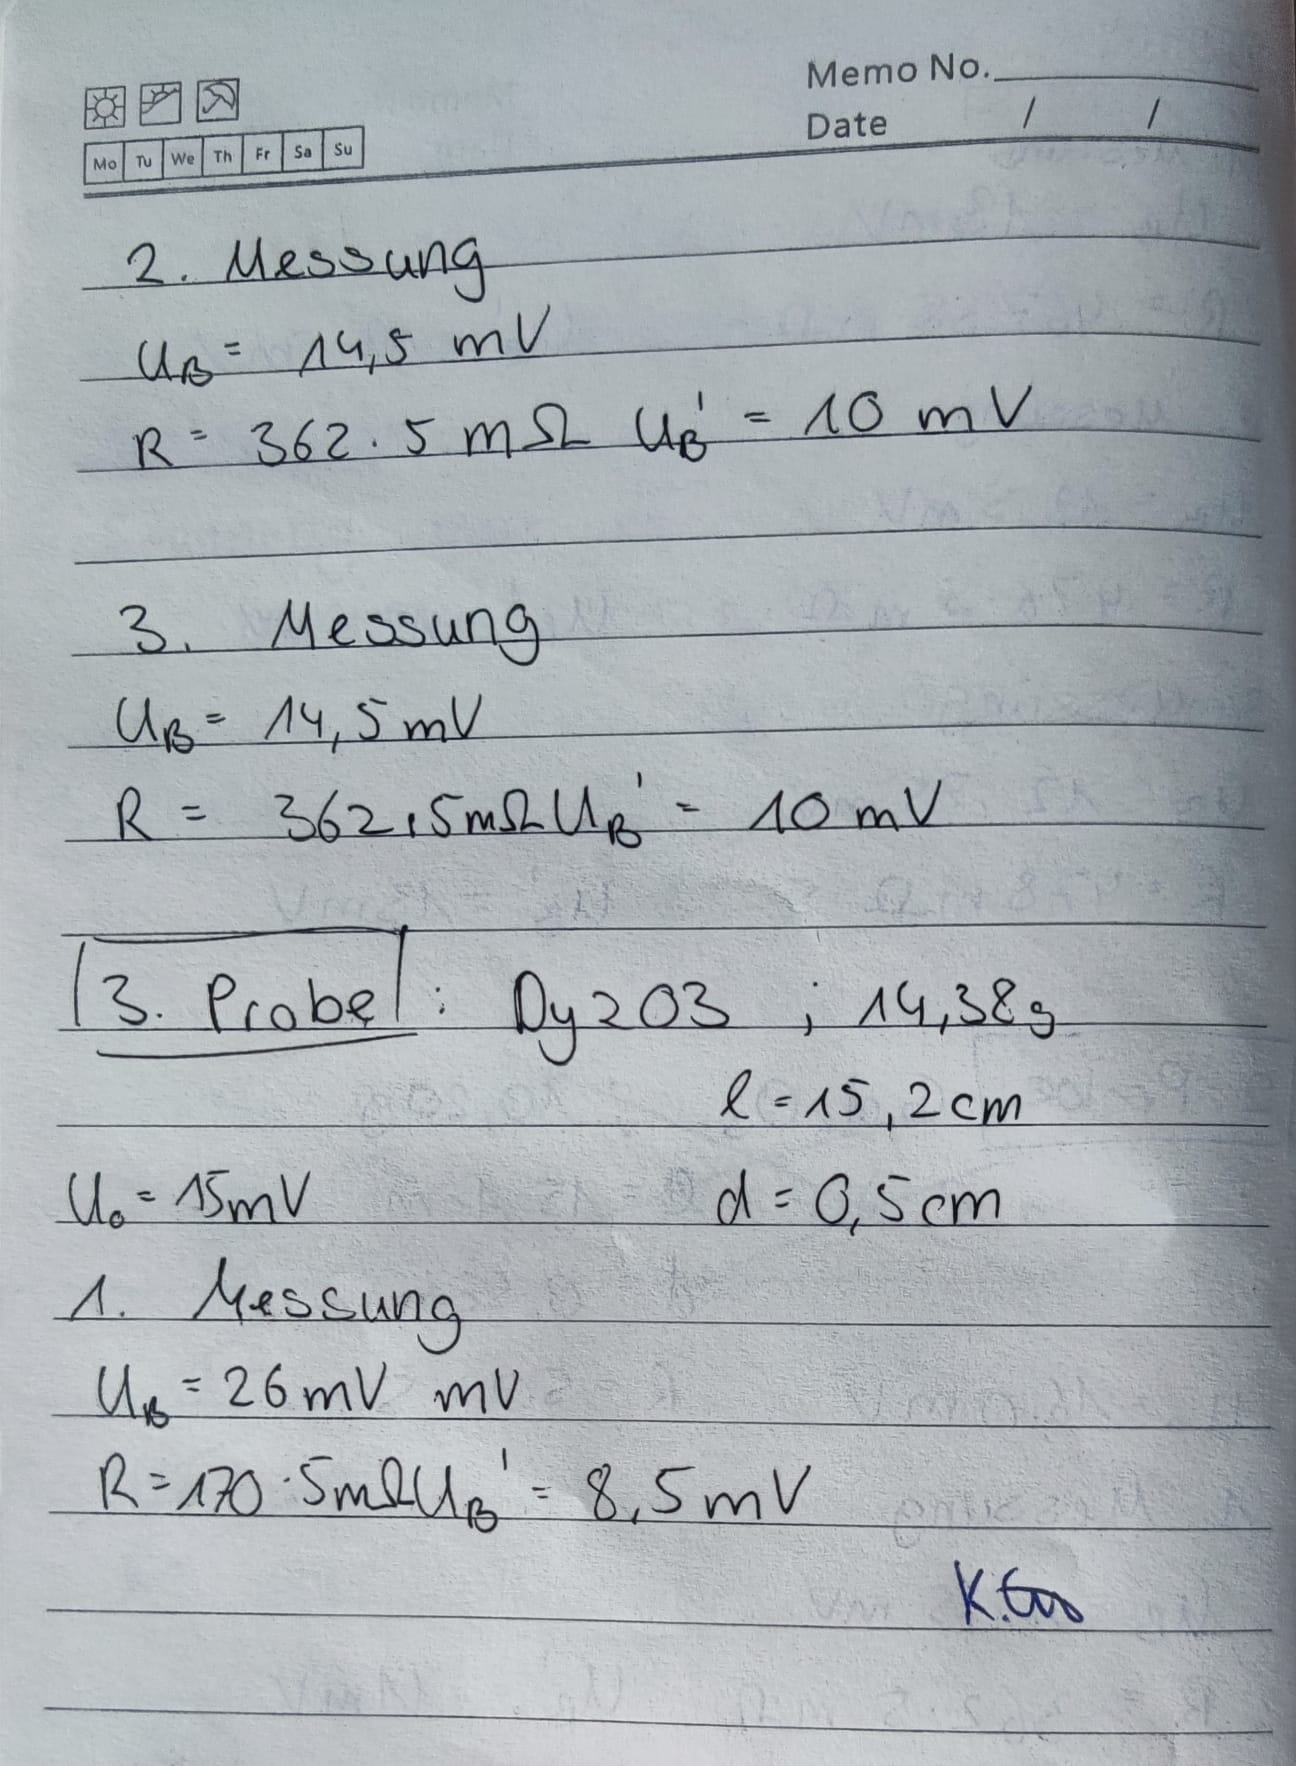 Memo No.
Date / /
Mo Tu We Th Fr Sa Su
2. Messung
U_B = 14,5 mV
R = 362 · 5 mΩ U_B' = 10 mV
3. Messung
U_B = 14,5 mV
R = 362 · 5mΩ U_B' = 10 mV
3. Probe : Dy2O3 ; 14,38g
l = 15,2cm
U_0 = 15mV d = 0,5cm
1. Messung
U_B = 26 mV mV
R = 170 · 5mΩ U_B' = 8,5 mV